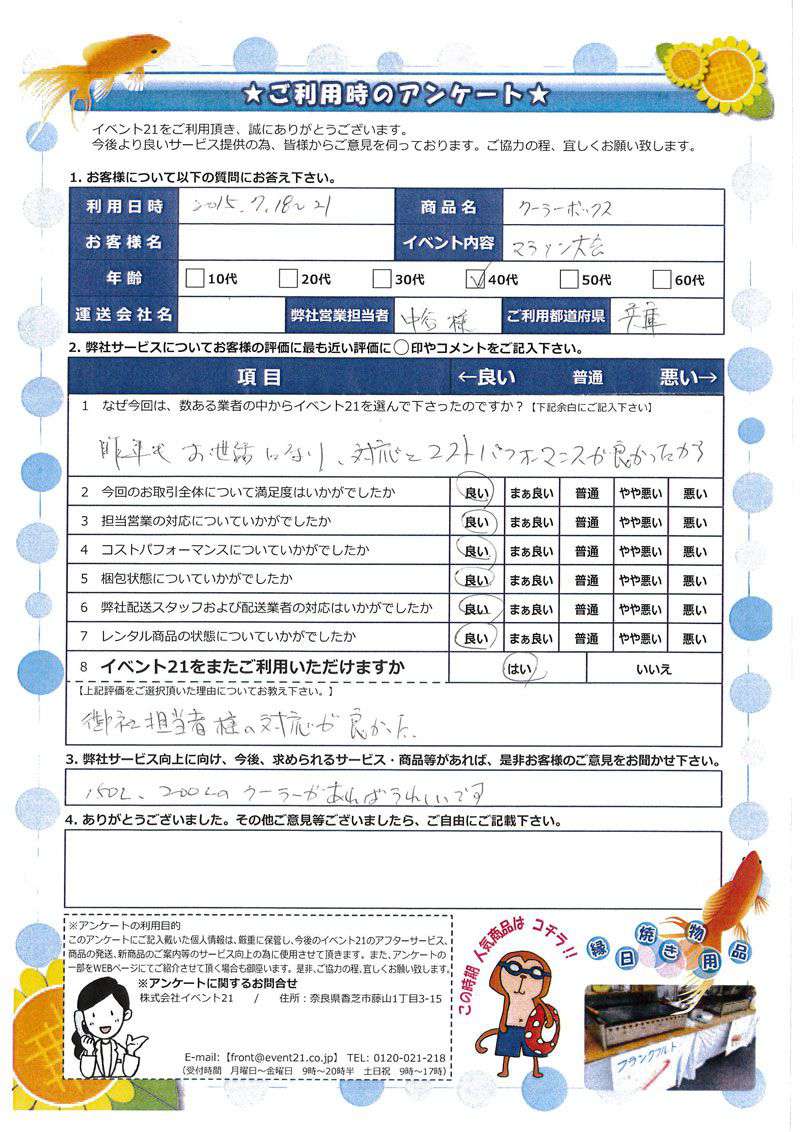 ★ご利用時のアンケート★
イベント21をご利用頂き、誠にありがとうございます。
今後より良いサービス提供の為、皆様からご意見を伺っております。ご協力の程、宜しくお願い致します。
1. お客様について以下の質問にお答え下さい。
利用日時 2015.7.18〜21 商品名 クーラーボックス
お客様名 イベント内容 マラソン大会
年齢 10代 20代 30代 40代 50代 60代
運送会社名 弊社営業担当者 中谷 様 ご利用都道府県 兵庫
2. 弊社サービスについてお客様の評価に最も近い評価に○印やコメントをご記入下さい。
項目 ←良い 普通 悪い→
1 なぜ今回は、数ある業者の中からイベント21を選んで下さったのですか？【下記余白にご記入下さい】
昨年もお世話になり、対応とコストパフォーマンスが良かったから
2 今回のお取引全体について満足度はいかがでしたか 良い まぁ良い 普通 やや悪い 悪い
3 担当営業の対応についていかがでしたか 良い まぁ良い 普通 やや悪い 悪い
4 コストパフォーマンスについていかがでしたか 良い まぁ良い 普通 やや悪い 悪い
5 梱包状態についていかがでしたか 良い まぁ良い 普通 やや悪い 悪い
6 弊社配送スタッフおよび配送業者の対応はいかがでしたか 良い まぁ良い 普通 やや悪い 悪い
7 レンタル商品の状態についていかがでしたか 良い まぁ良い 普通 やや悪い 悪い
8 イベント21をまたご利用いただけますか はい いいえ
【上記評価をご選択頂いた理由についてお教え下さい。】
御社担当者様の対応が良かった.
3. 弊社サービス向上に向け、今後、求められるサービス・商品等があれば、是非お客様のご意見をお聞かせ下さい。
150L、200Lのクーラーがあればうれしいです
4. ありがとうございました。その他ご意見等ございましたら、ご自由にご記載下さい。
※アンケートの利用目的
このアンケートにご記入戴いた個人情報は、厳重に保管し、今後のイベント21のアフターサービス、
商品の発送、新商品のご案内等のサービス向上の為に使用させて頂きます。また、アンケートの
一部をWEBページにてご紹介させて頂く場合も御座います。是非、ご協力の程、宜しくお願い致します。
※アンケートに関するお問合せ
株式会社イベント21 / 住所：奈良県香芝市藤山1丁目3-15
E-mail:【front@event21.co.jp】 TEL: 0120-021-218
（受付時間 月曜日～金曜日 9時～20時半 土日祝 9時～17時）
この時期 人気商品は コチラ!!
縁日焼き物用品
フランクフルト